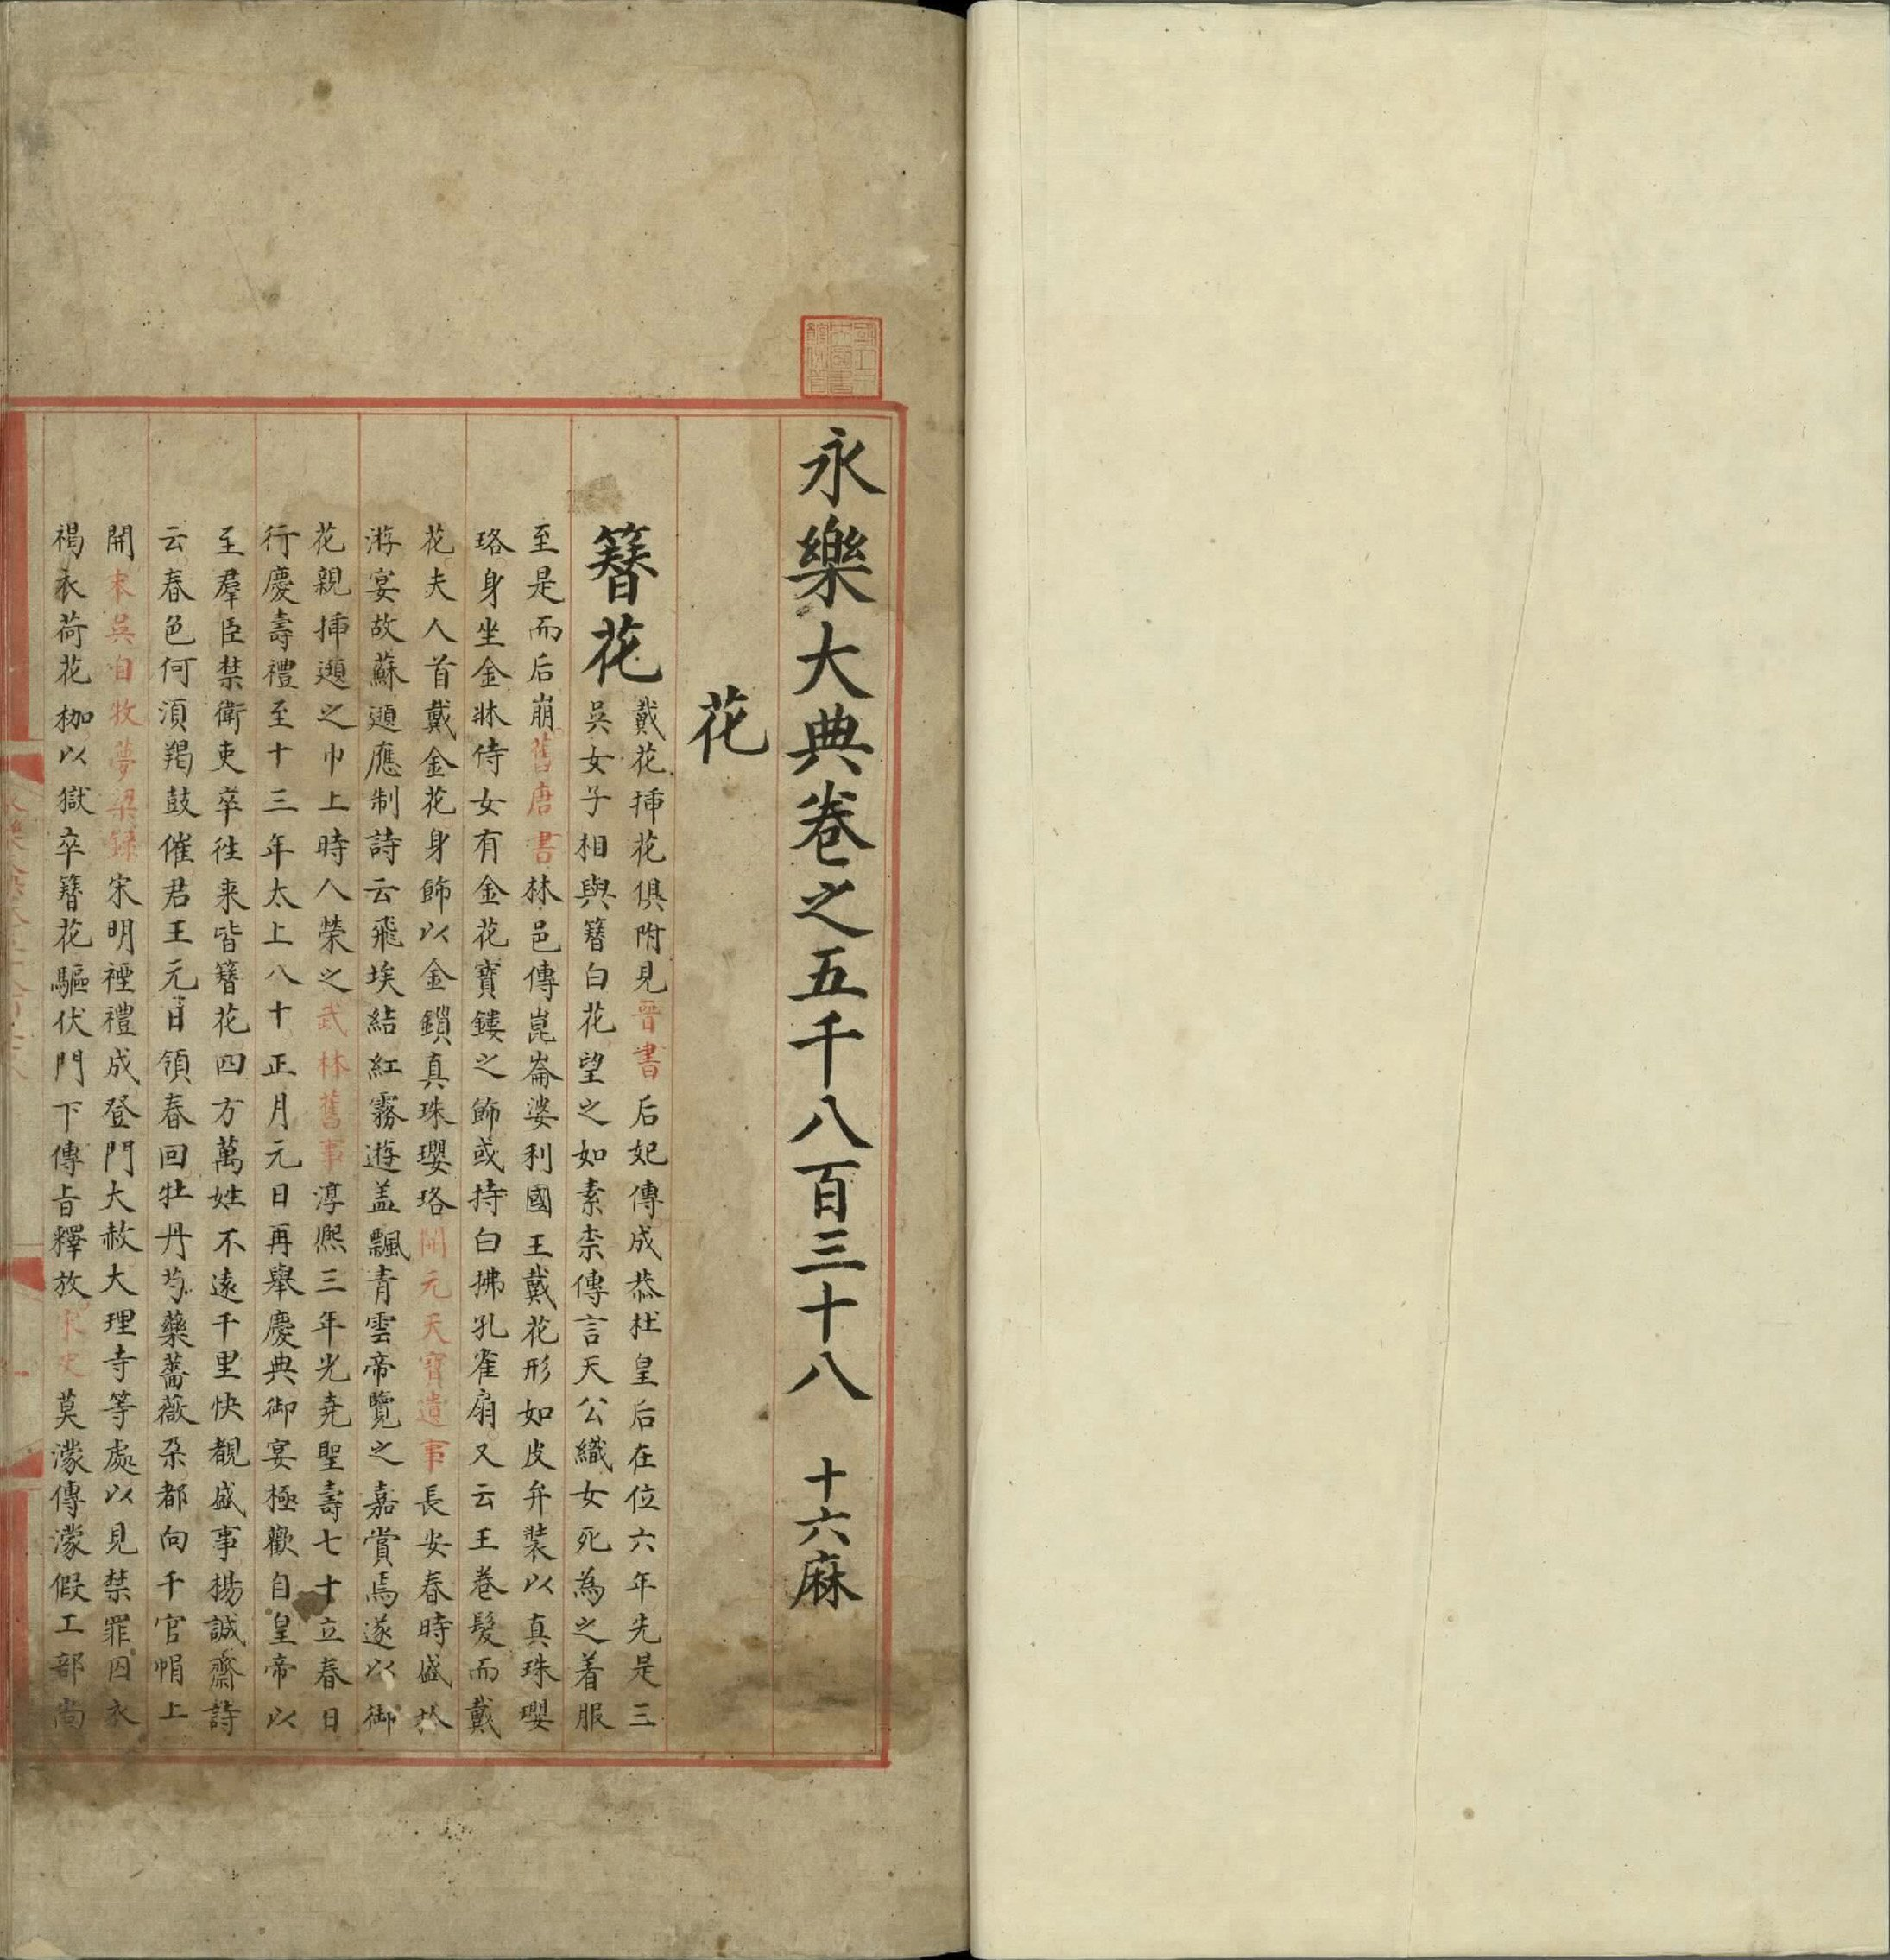 永樂大典卷之五千八百三十八 十六麻
花
簪花
戴花揷花俱附見晉書后妃傳成恭杜皇后在位六年先是三
吳女子相與簪白花望之如素柰傳言天公織女死為之着服
至是而后崩舊唐書林邑傳崑崙婆利國王戴花形如皮弁裝以真珠瓔
珞身坐金牀侍女有金花寶鏤之飾或持白拂孔雀扇又云王卷髮而戴
花夫人首戴金花身飾以金鎖真珠瓔珞開元天寶遺事長安春時盛於
游宴故蘇頲應制詩云飛埃結紅霧遊盖飄青雲帝覽之嘉賞焉遂以御
花親揷頲之巾上時人榮之武林舊事淳熙三年光堯聖壽七十立春日
行慶壽禮至十三年太上八十正月元日再舉慶典御宴極歡自皇帝以
至羣臣禁衛吏卒往来皆簪花四方萬姓不遠千里快覩盛事楊誠齋詩
云春色何湏羯鼓催君王元日領春回牡丹芍藥薔薇朶都向千官帽上
開宋吳自牧夢梁録宋明禋禮成登門大赦大理寺等處以見禁罪囚衣
褐衣荷花枷以獄卒簪花驅伏門下傳旨釋放宋史莫濛傳濛假工部尚